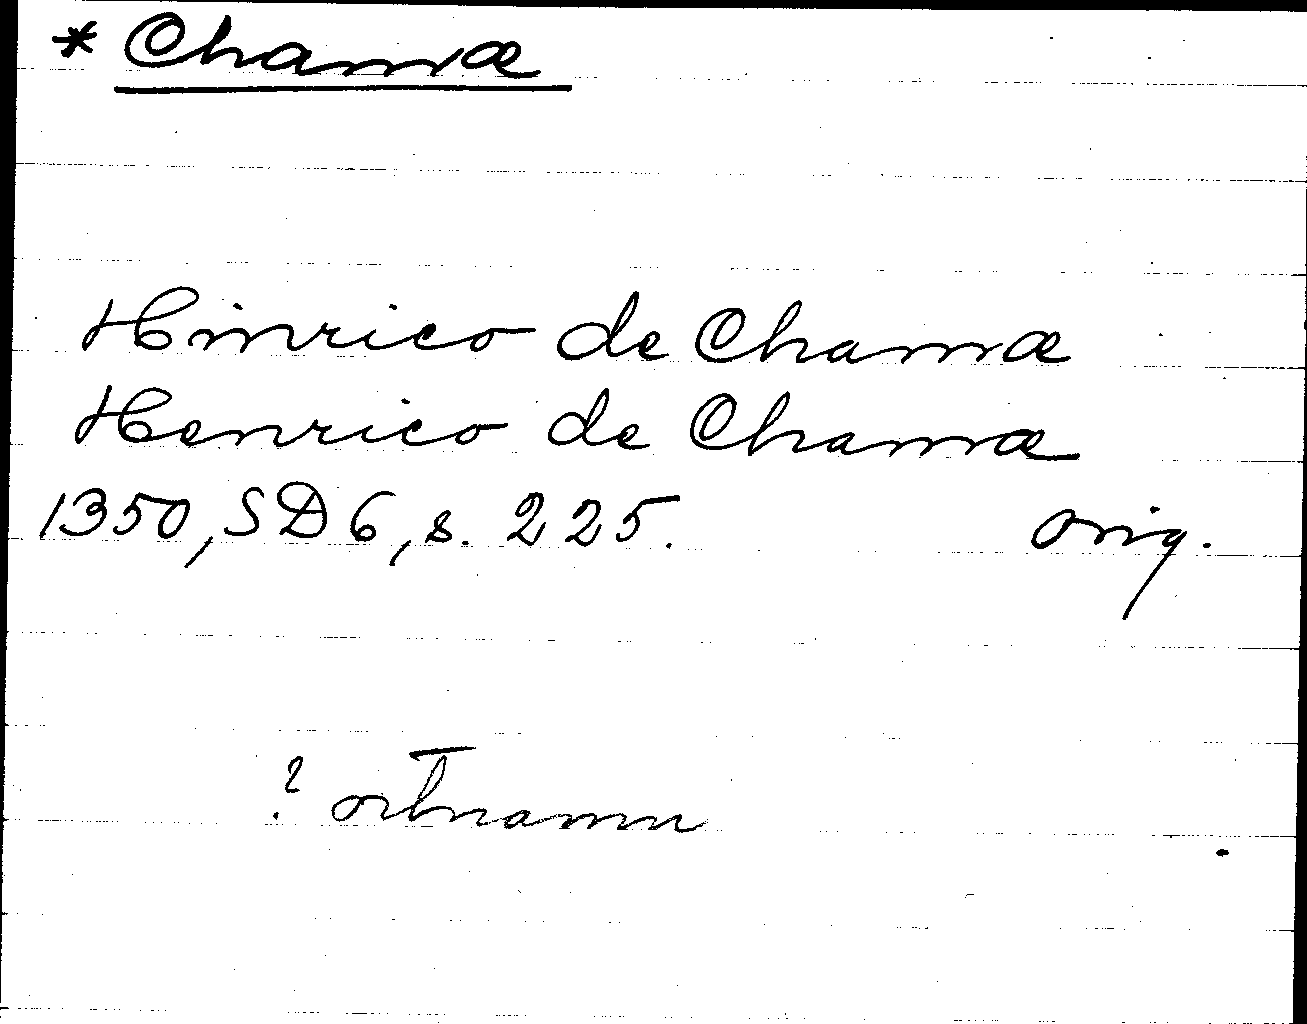 * Charnæ
Hinrico de Charnæ
Henrico de Charnæ
1350, SD 6, s. 225. orig.
? ortnamn